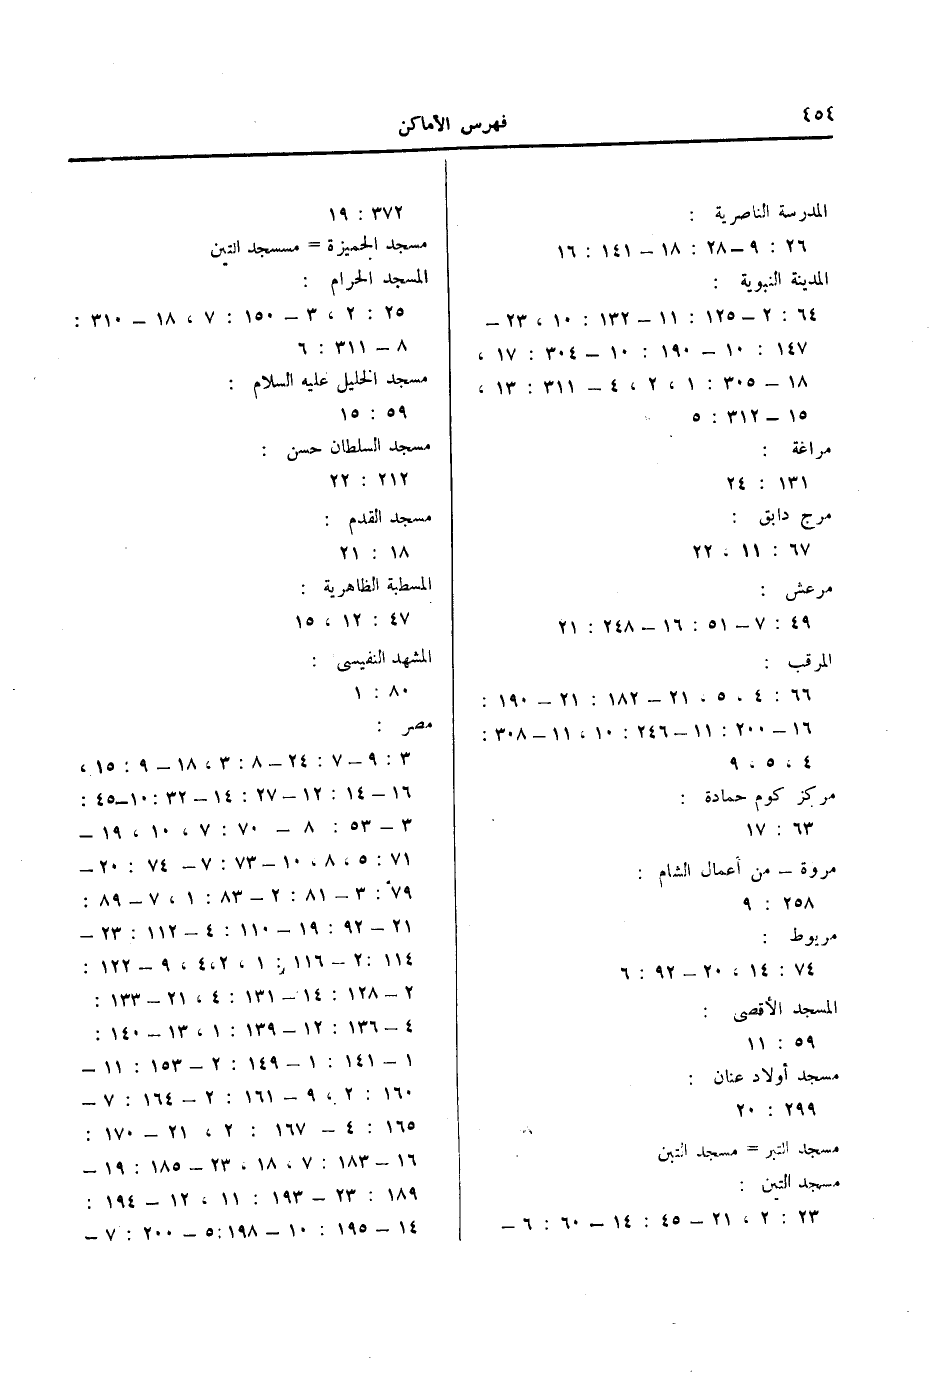 ٤٥٤
فهرس الأماكن
المدرسة الناصرية :
٢٦ : ٩ – ٢٨ : ١٨ – ١٤١ : ١٦
المدينة النبوية :
٦٤ : ٢ – ١٢٥ : ١١ – ١٣٢ : ١٠ ، ٢٣ –
١٤٧ : ١٠ – ١٩٠ : ١٠ – ٣٠٤ : ١٧ ،
١٨ – ٣٠٥ : ١ ، ٢ ، ٤ – ٣١١ : ١٣ ،
١٥ – ٣١٢ : ٥
مراغة :
١٣١ : ٢٤
مرج دابق :
٦٧ : ١١ ، ٢٢
مرعش :
٤٩ : ٧ – ٥١ : ١٦ – ٢٤٨ : ٢١
المرقب :
٦٦ : ٤ ، ٥ ، ٢١ – ١٨٢ : ٢١ – ١٩٠ :
١٦ – ٢٠٠ : ١١ – ٢٤٦ : ١٠ ، ١١ – ٣٠٨ :
٤ ، ٥ ، ٩
مركز كوم حمادة :
٦٣ : ١٧
مروة – من أعمال الشام :
٢٥٨ : ٩
مربوط :
٧٤ : ١٤ ، ٢٠ – ٩٢ : ٦
المسجد الأقصى :
٥٩ : ١١
مسجد أولاد عنان :
٢٩٩ : ٢٠
مسجد التبر = مسجد التبن
مسجد التبن :
٢٣ : ٢ ، ٢١ – ٤٥ : ١٤ – ٦٠ : ٦ –
٣٧٢ : ١٩
مسجد الجميزة = مسسجد التبن
المسجد الحرام :
٢٥ : ٢ ، ٣ – ١٥٠ : ٧ ، ١٨ – ٣١٠ :
٨ – ٣١١ : ٦
مسجد الخليل عليه السلام :
٥٩ : ١٥
مسجد السلطان حسن :
٢١٢ : ٢٢
مسجد القدم :
١٨ : ٢١
المسطبة الظاهرية :
٤٧ : ١٢ ، ١٥
المشهد النفيسى :
٨٠ : ١
مصر :
٣ : ٩ – ٧ : ٢٤ – ٨ : ٣ ، ١٨ – ٩ : ١٥ ،
١٦ – ١٤ : ١٢ – ٢٧ : ١٤ – ٣٢ : ١٠ – ٤٥ :
٣ – ٥٣ : ٨ – ٧٠ : ٧ ، ١٠ ، ١٩ –
٧١ : ٥ ، ٨ ، ١٠ – ٧٣ : ٧ – ٧٤ : ٢٠ –
٧٩ : ٣ – ٨١ : ٢ – ٨٣ : ١ ، ٧ – ٨٩ :
٢١ – ٩٢ : ١٩ – ١١٠ : ٤ – ١١٢ : ٢٣ –
١١٤ : ٢ – ١١٦ : ١ ، ٢ ، ٤ ، ٩ – ١٢٢ :
٢ – ١٢٨ : ١٤ – ١٣١ : ٤ ، ٢١ – ١٣٣ :
٤ – ١٣٦ : ١٢ – ١٣٩ : ١ ، ١٣ – ١٤٠ :
١ – ١٤١ : ١ – ١٤٩ : ٢ – ١٥٣ : ١١ –
١٦٠ : ٢ ، ٩ – ١٦١ : ٢ – ١٦٤ : ٧ –
١٦٥ : ٤ – ١٦٧ : ٢ ، ٢١ – ١٧٠ :
١٦ – ١٨٣ : ٧ ، ١٨ ، ٢٣ – ١٨٥ : ١٩ –
١٨٩ : ٢٣ – ١٩٣ : ١١ ، ١٢ – ١٩٤ :
١٤ – ١٩٥ : ١٠ – ١٩٨ : ٥ – ٢٠٠ : ٧ –